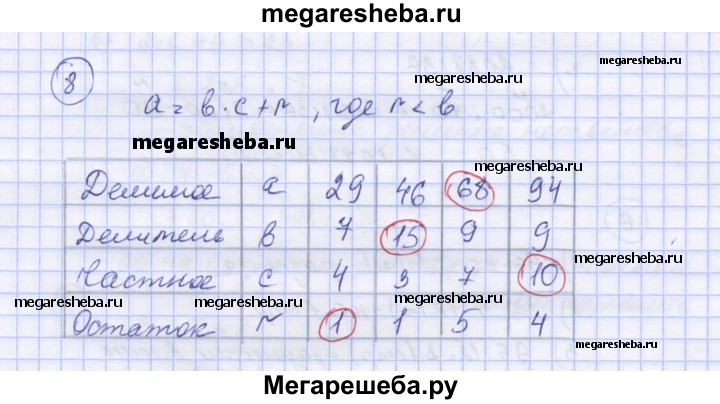 megaresheba.ru
8
megaresheba.ru
a = в·c+r, где r < в
megaresheba.ru
megaresheba.ru
Делимое a 29 46 68 94
Делитель в 7 15 9 9
Частное c 4 3 7 10
megaresheba.ru megaresheba.ru megaresheba.ru
Остаток r 1 1 5 4
megaresheba.ru
megaresheba.ru
Мегарешеба.ру